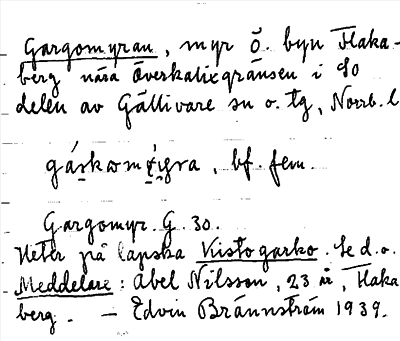 Gargomyran, myr ö. byn Flaka-
berg nära Överkalixgränsen i So
delen av Gällivare sn o. tg, Norrb. l
bf. fem.
Gargomyr. G 30.
Heter på lapska Kistogarko. Se d.o.
Meddelare: Abel Nilsson, 23 år, Flaka
berg. – Edvin Brännström 1939.